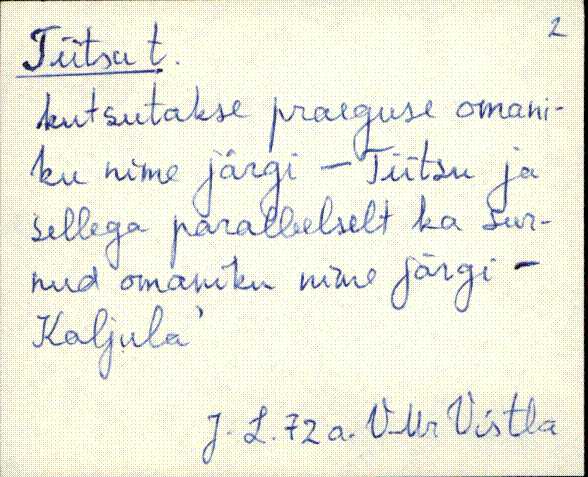 2
Tiitsu t.
kutsutakse praeguse omani-
ku nime järgi – Tiitsu ja
sellega paralleelselt ka sur-
nud omaniku nime järgi –
Kaljula'
J. L. 72 a. V-Mr Vistla